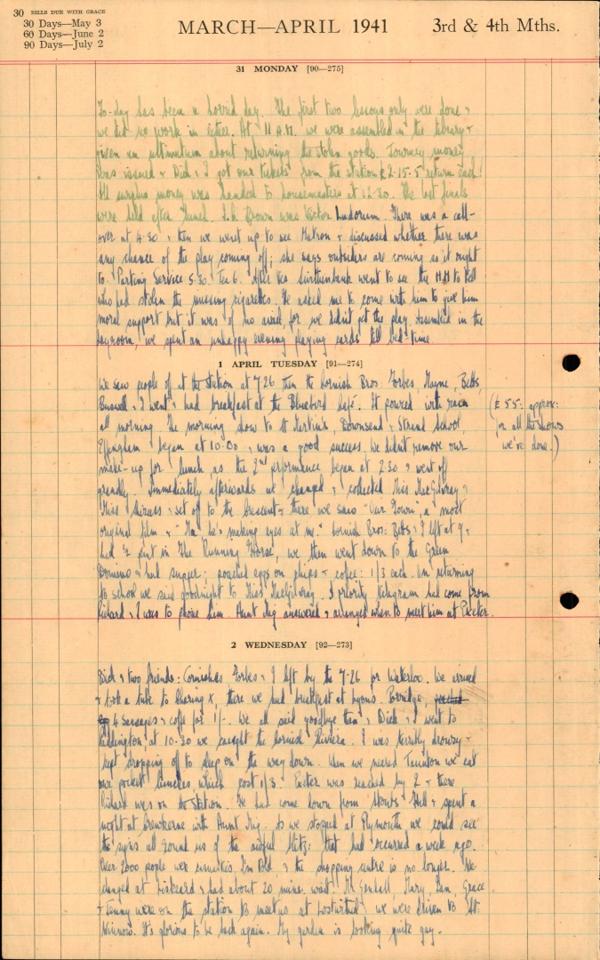 30 BILLS DUE WITH GRACE
30 Days—May 3
60 Days—June 2
90 Days—July 2
MARCH—APRIL 1941
3rd & 4th Mths.
31 MONDAY [90—275]
To-day has been a horrid day. The first two lessons only were done &
we did no work in either. At 11 A.M. we were assembled in the library &
given an ultimatum about returning the stolen goods. Journey money
was issued & Dick & I got our tickets from the station £2-15-5 return each!
All surplus money was handed to housemasters at 12-30. The last finals
were held after lunch. Brown was Victor Ludorum. There was a call-
over at 4.30 & then we went up to see Matron & discussed whether there was
any chance of the play coming off; she says outsiders are coming so it ought
to. Parting Service 5.30. Tea 6. After tea went to see the H.M. to tell
who had stolen the missing cigarettes. He asked me to come with him to give him
moral support but it was of no avail for we didn't get the play. Assembled in the
dayroom, we spent an unhappy evening playing cards till bed time
1 APRIL TUESDAY [91—274]
We saw people off at the station at 7.26 then the Cornish Bros. Forbes, Mayne, Betts,
& I went & had breakfast at the Bluebird Café. It poured with rain
all morning. The morning show to St Martin's, Downsend & Strand School,
Effingham began at 10.00 & was a good success. We didn't remove our
make-up for lunch as the 2nd performance began at 2.30 & went off
grandly. Immediately afterwards we changed & collected Miss MacGilvray &
Miss & set off to the Crescent & there we saw "Our Town", a most
original film & "He's making eyes at me." Cornish Bros: Betts & I left at 9 &
had ½ pint in 'The Running Horse', we then went down to the Green
Domino & had supper; poached eggs on chips & coffee: 1/3 each. On returning
to school we said goodnight to Miss MacGilvray. A priority telegram had come from
Richard & I was to phone him. Aunt answered & arranged when to meet him at Exeter.
(£55: approx:
for all the shows
we've done.)
2 WEDNESDAY [92—273]
Dick & two friends: Cornishes, Forbes & I left by the 7-26 for Waterloo. We arrived
& took a tube to Charing X, there we had breakfast at Lyons. Porridge,
& sausages & coffee for 1/-. We all said goodbye then & Dick & I went to
Paddington at 10-30 we caught the Cornish Riviera. I was terribly drowsy &
kept dropping off to sleep on the way down. When we neared Taunton we eat
our packet lunches, which cost 1/3. Exeter was reached by 2 & there
Richard was on the Station. He had come down from Hill & spent a
night at Crewkerne with Aunt. As we stopped at Plymouth we could see
the signs all round us of the awful blitz: that had occurred a week ago.
Over 2000 people were casualties I'm told & the shopping centre is no longer. We
changed at Liskeard & had about 20 mins. wait. Mary, Grace
& Jenny were on the station to meet us at Lostwithiel & we were driven to St.
Winnow. It's glorious to be back again. My garden is looking quite gay.